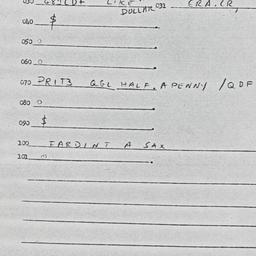 LIKE
DOLLAR 031
040 $
050 0
060 0
070 PRIT3 GGL HALF A PENNY /QDF
080 0
090 $
100 FARDINT A SAX
101 0